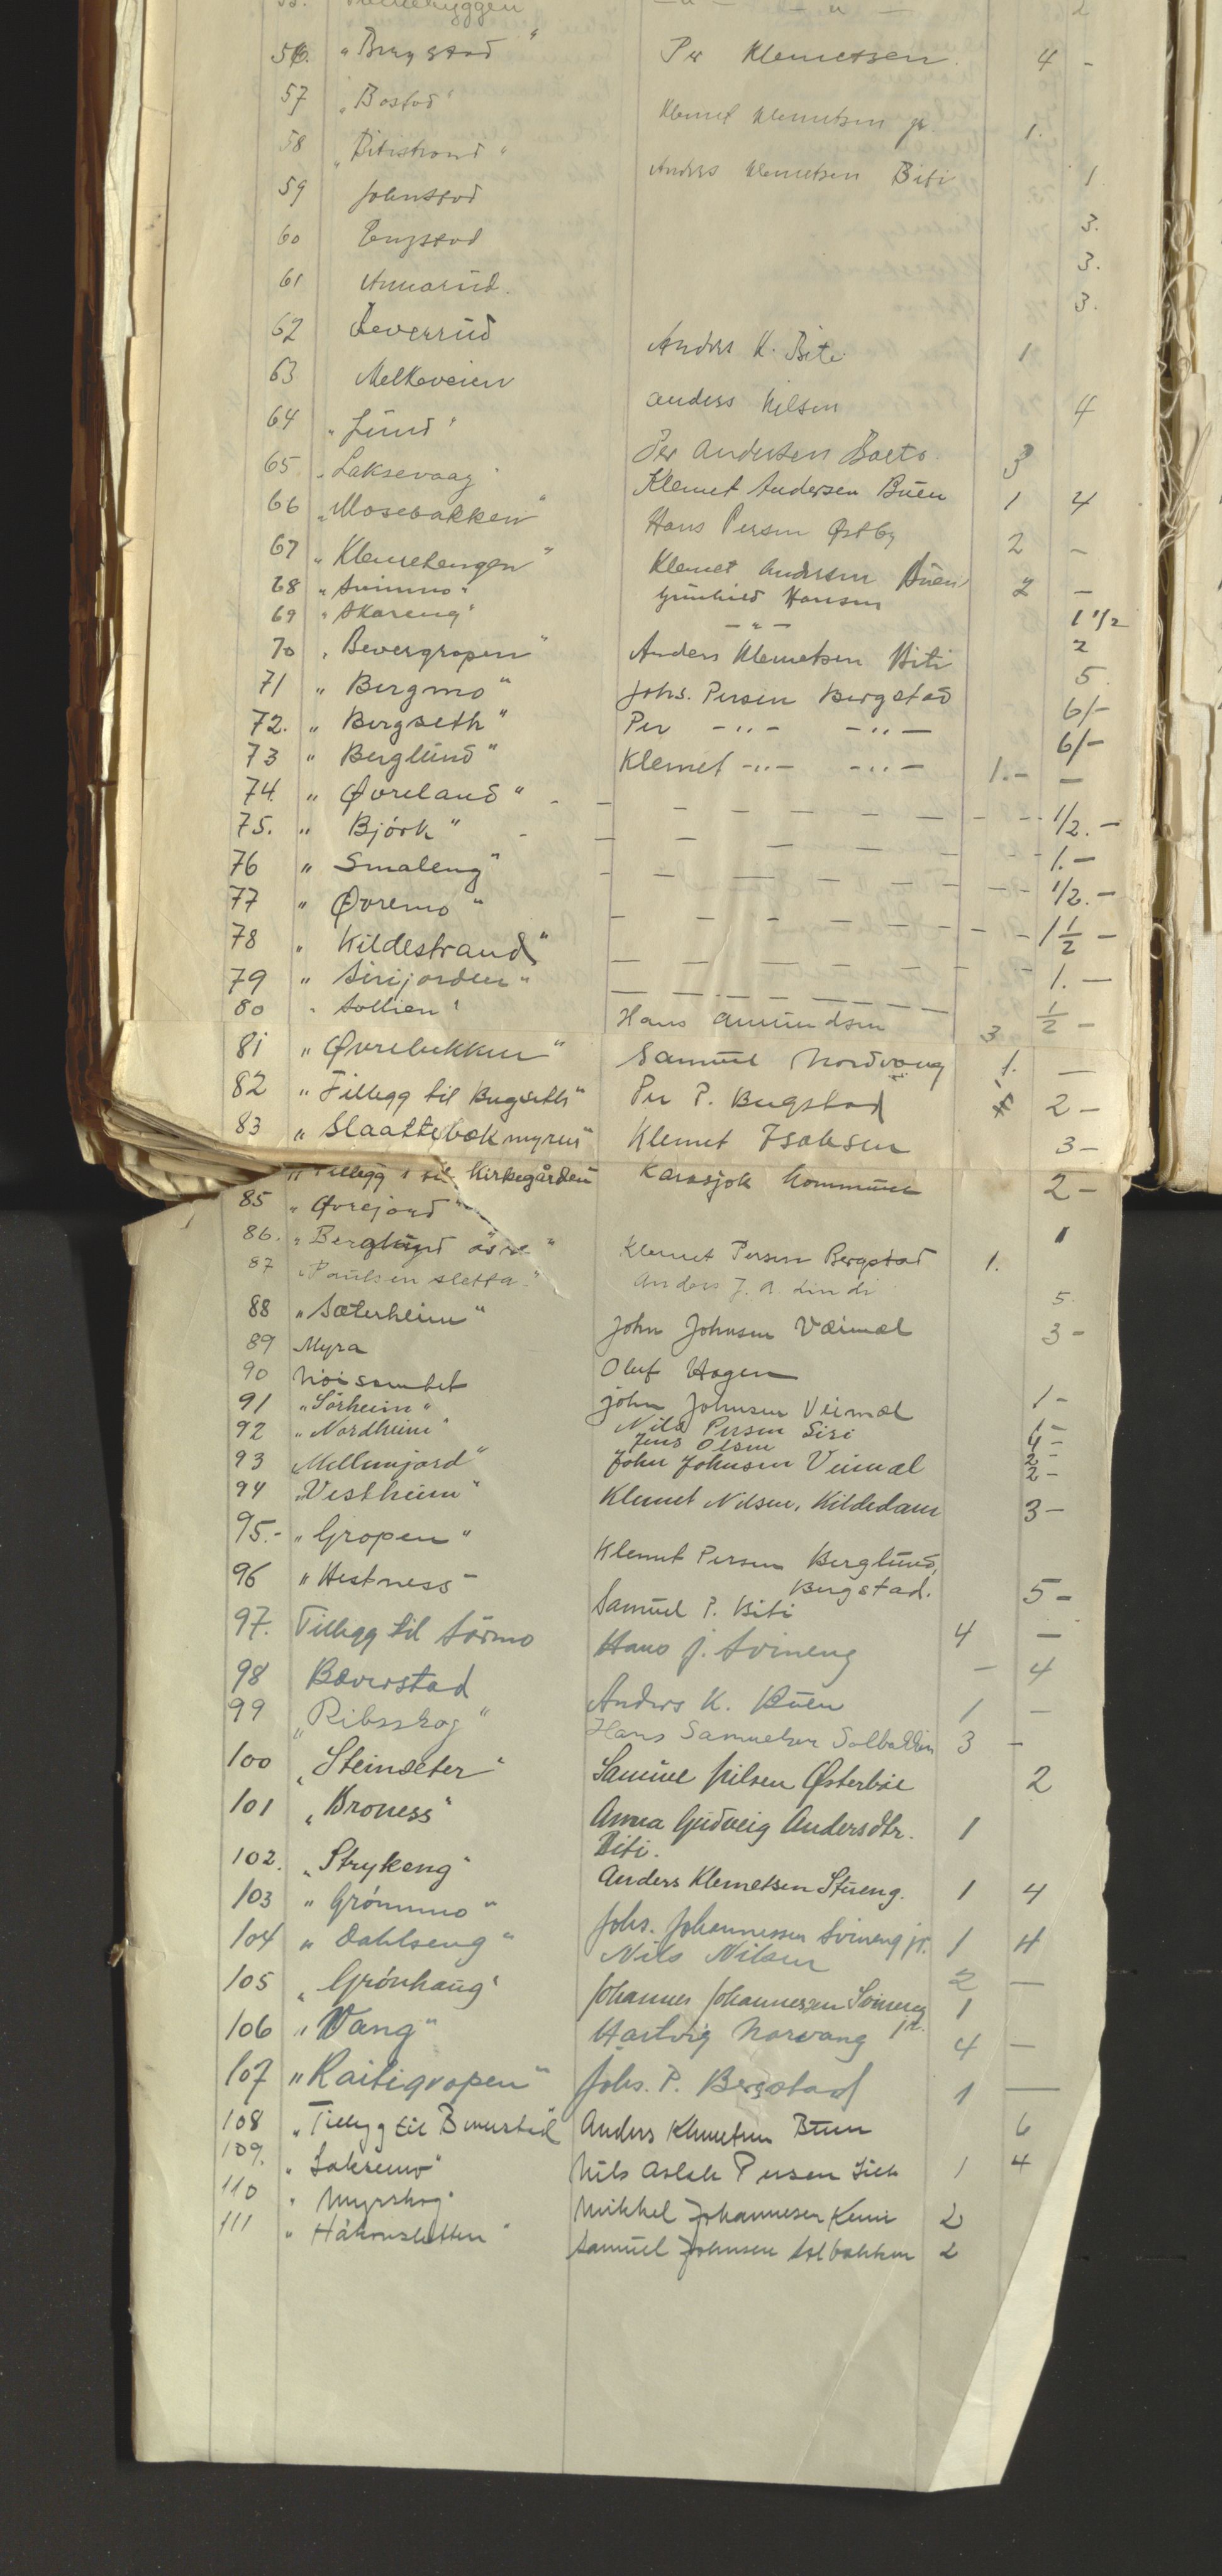 56. „Bergstad" Per Klemetsen. 4 -
57 „Bostad" Klemet Klemetsen jr. 1.
58 „Bitistrand" Anders Klemetsen Biti 1
59 Johnstad 3.
60 Engstad 3.
61 Annarud. 3.
62 Leverrud Anders K. Biti 1
63 Melkeveien Anders Nilsen 4
64 „Lund" Per Andersen Boeto. 3
65. „Laksevaag" Klemet Andersen Buen 1 4
66 „Mosebakken" Hans Persen Østby 2 -
67 „Klemetengen" Klemet Andersen Buen 2 -
68 „Svinmo" Gunhild Hansen 1 1/2
69 „Skareng" - " - 2
70 „Bevergropen" Anders Klemetsen Biti 5.
71 „Bergmo" Johs. Persen Bergstad 6/-
72. „Bergseth" Per - " - - " - 6/-
73 „Berglund" Klemet - " - - " - 1.- -
74. „Øvreland" - - - - - - - 1/2.-
75. „Björk" - - - - - - 1.-
76 „Smaleng" - - - - - - - 1/2.-
77 „Øvremo" - - - - - - 1 1/2 -
78 „Kildestrand" - - - - - - 1. -
79 „Sirijorden" - - - - - - 1/2 -
80 „Sollien" Hans Amundsen 3
81 „Øvrebakken" Samuel Nordvang 1. -
82 „Tillegg til Bergseth" Per P. Bergstad 2 -
83 „Slaattebækmyren" Klemet Isaksen 3-
„Tillegg til Kirkegården Karasjok Kommune 2-
85 „Øvrejord" 1
86. „Berglund øvre" Klemet Persen Bergstad 1.
87 „Paulsensletta" Anders J. A. Lindi 5
88 „Sæterheim" John Johnsen Væimæl 3-
89 Myra Oluf Hagen
90 Nøisomhet John Johnsen Veimæl 1-
91 „Sörheim" Nils Persen Siri
92 „Nordheim" Jens Olsen
93 „Mellemjord" John Johnsen Veimæl 2-
94 „Vestheim" Klemet Nilsen, Kildedam 3-
95.- „Gropen" Klemet Persen Berglund,
Bergstad. 5-
96 „Hestness" Samuel P. Biti -
97. Tillegg til Sörmo Hans J. Svineng 4
98 Beverstad Anders K. Buen - 4
99 „Ribsskog" Hans Samuelsen Solbakken 1 -
100 „Steinseter" Samuel Nilsen Østerbie 3 - 2
101 „Broness" Anna Gudveig Andersdtr. 1
Biti.
102. „Strykeng" Anders Klemetsen Stueng. 1 4
103 „Grönnmo" Johs. Johannessen Svineng jr. 1 4
104 „Dahlseng" Nils Nilsen 2 -
105 „Grönhaug" Johannes Johannessen Svineng jr. 1
106 „Vang" Hartvig Norvang 4 -
107 „Raitigropen" Johs. P. Bergstad 1 -
108 „Tillegg til Beverstad Anders Klemetsen Buen 6
109. „Laksemo" Nils Aslak Persen Siri 1 4
110 „Myrskog" Mikkel Johannesen Kemi 2
111 „Håkonsletten" Samuel Johnsen Solbakken 2